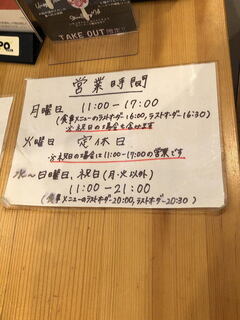 TAKE OUT
PO.
営業時間
月曜日 11:00-17:00
(食事メニューのラストオーダー16:00,ラストオーダー16:30)
※祝日の場合も含みます
火曜日 定休日
※祝日の場合は11:00-17:00の営業です
水〜日曜日、祝日(月・火以外)
11:00-21:00
(食事メニューのラストオーダー20:00,ラストオーダー20:30)